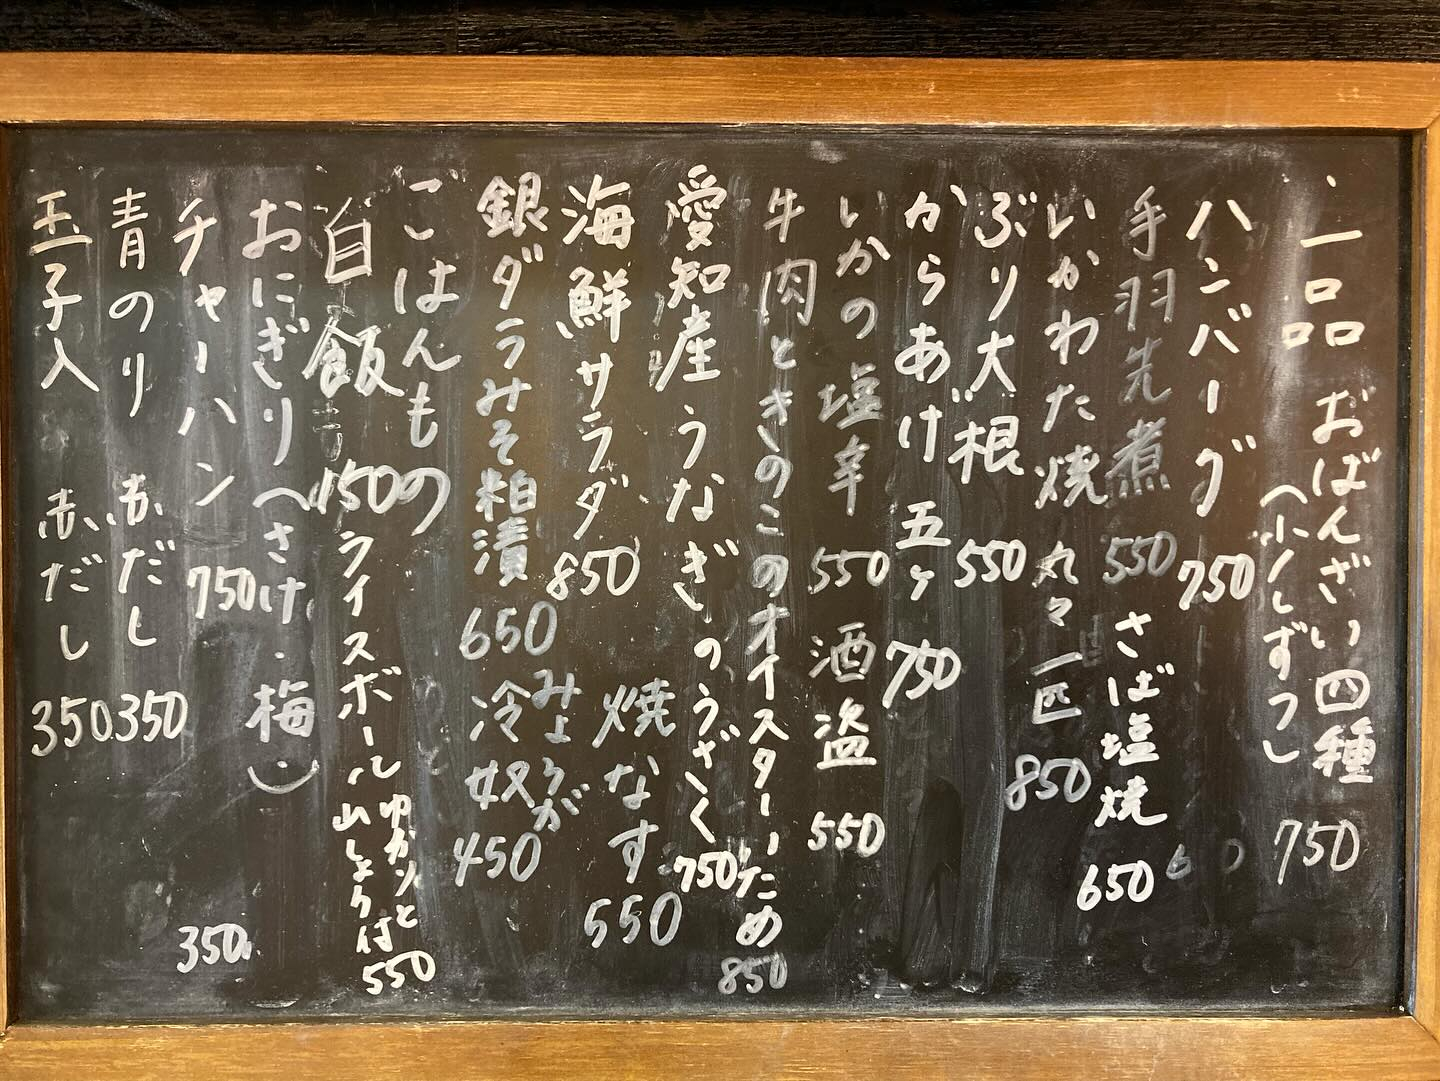 一品 おばんざい四種 750
(少しずつ)
ハンバーグ 750
手羽先煮 550 さば塩焼 650
いかわた焼 丸々一匹 850
ぶり大根 550
からあげ 五ヶ 750
いかの塩辛 550 酒盗 550
牛肉ときのこのオイスターいため 850
愛知産うなぎのうざく 750
海鮮サラダ 850 焼なす 550
銀ダラみそ粕漬 650 みょうが冷奴 450
ごはんもの
白飯 150 ライスボール ゆかりと山しょう付 550
おにぎり(さけ・梅) 350
チャーハン 750
青のり 赤だし 350
玉子入 赤だし 350